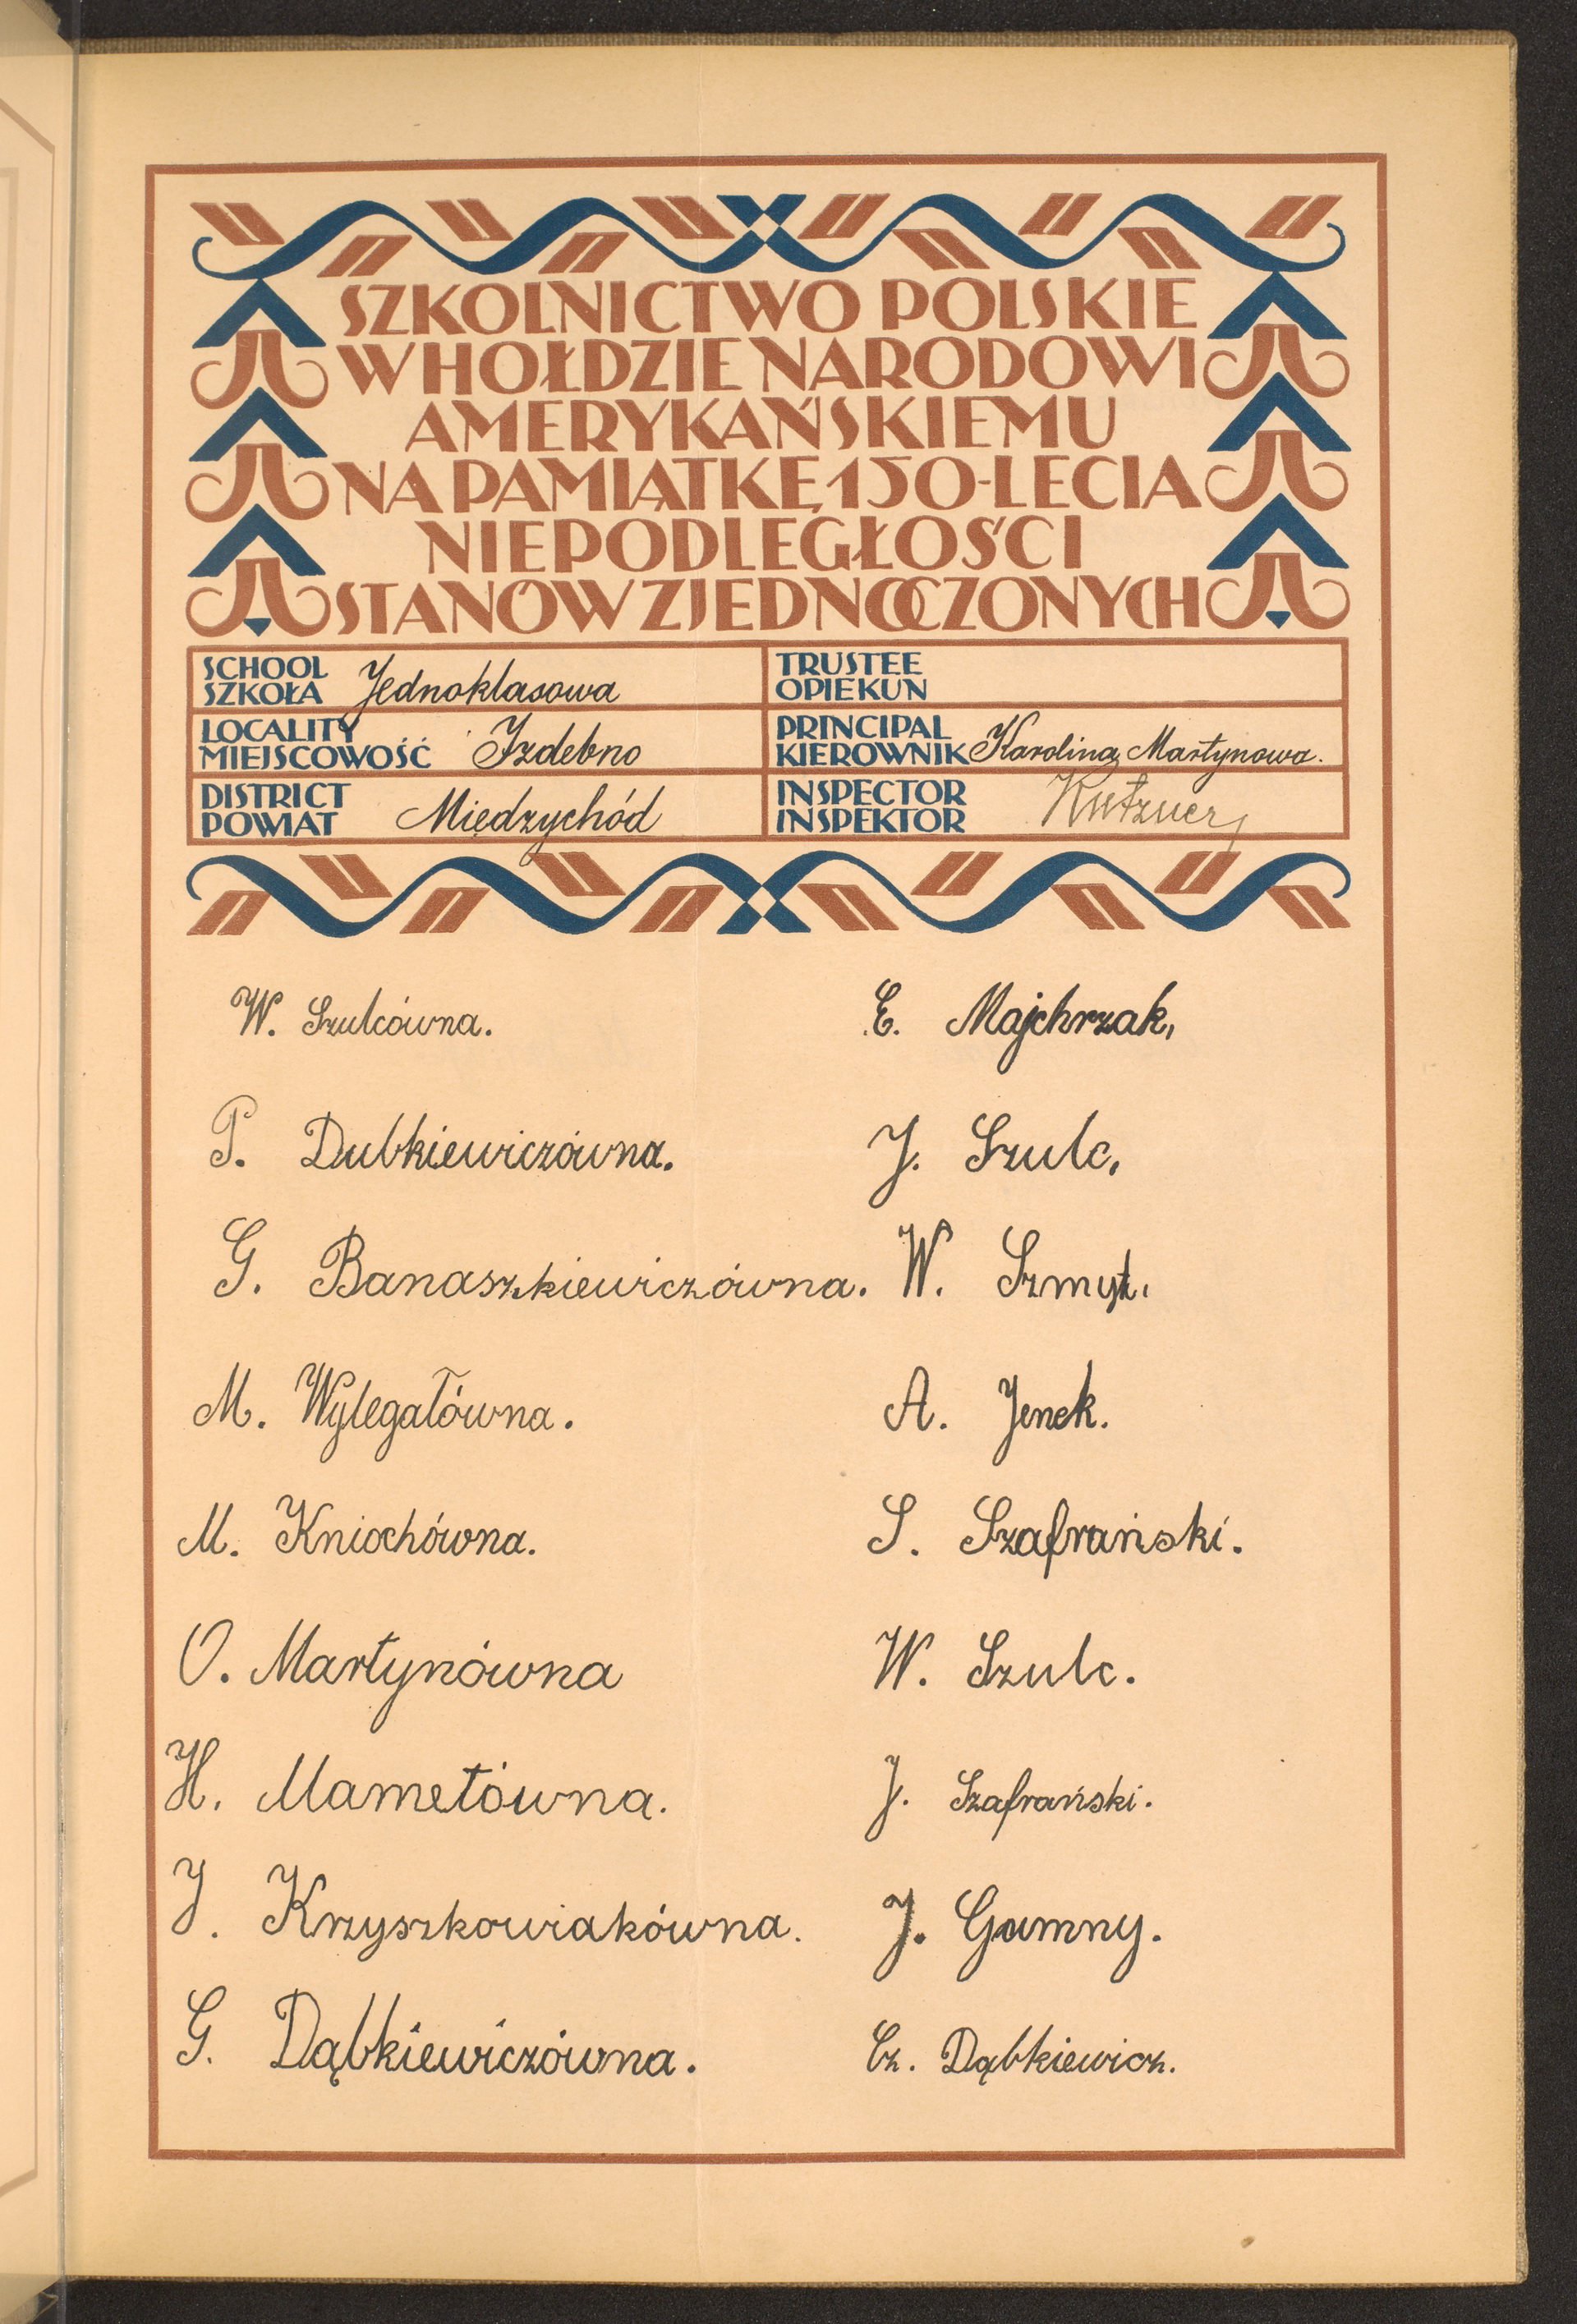 SZKOLNICTWO POLSKIE
W HOŁDZIE NARODOWI
AMERYKAŃSKIEMU
NA PAMIĄTKĘ 150-LECIA
NIEPODLEGŁOŚCI
STANÓW ZJEDNOCZONYCH
SCHOOL
SZKOŁA Jednoklasowa
LOCALITY
MIEJSCOWOŚĆ Izdebno
DISTRICT
POWIAT Międzychód
TRUSTEE
OPIEKUN
PRINCIPAL
KIEROWNIK Karolina Martynowa.
INSPECTOR
INSPEKTOR Kutzner
W. Szulcówna.
P. Dubkiewiczówna.
G. Banaszkiewiczówna.
M. Wylegałówna.
M. Kniochówna.
O. Martynówna
H. Mametówna.
J. Krzyszkowiakówna.
G. Dąbkiewiczówna.
E. Majchrzak,
J. Szulc,
W. Szmyt.
A. Jenek.
S. Szafrański.
W. Szulc.
J. Szafrański.
J. Gumny.
Cz. Dąbkiewicz.